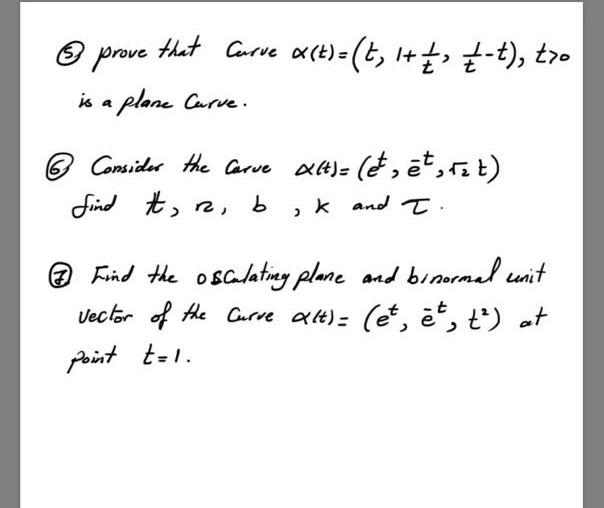 ⑤ prove that Curve α(t)=(t, 1+1/t, 1/t-t), t>0
is a plane Curve.
⑥ Consider the Curve α(t)= (e^t, e^-t, √2 t)
find t, n, b, k and τ.
⑦ Find the osculating plane and binormal unit
vector of the Curve α(t)= (e^t, e^-t, t²) at
point t=1.